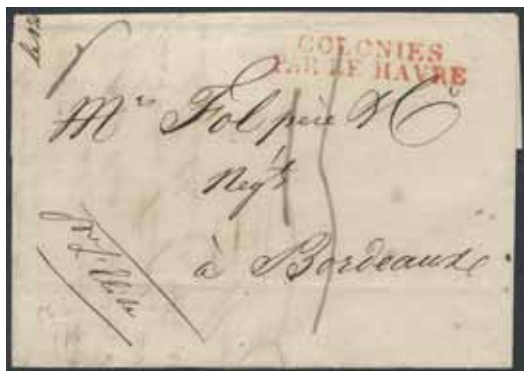 COLONIES
PAR LE HAVRE
Mrs Fol père & Co
Negts
à Bordeaux